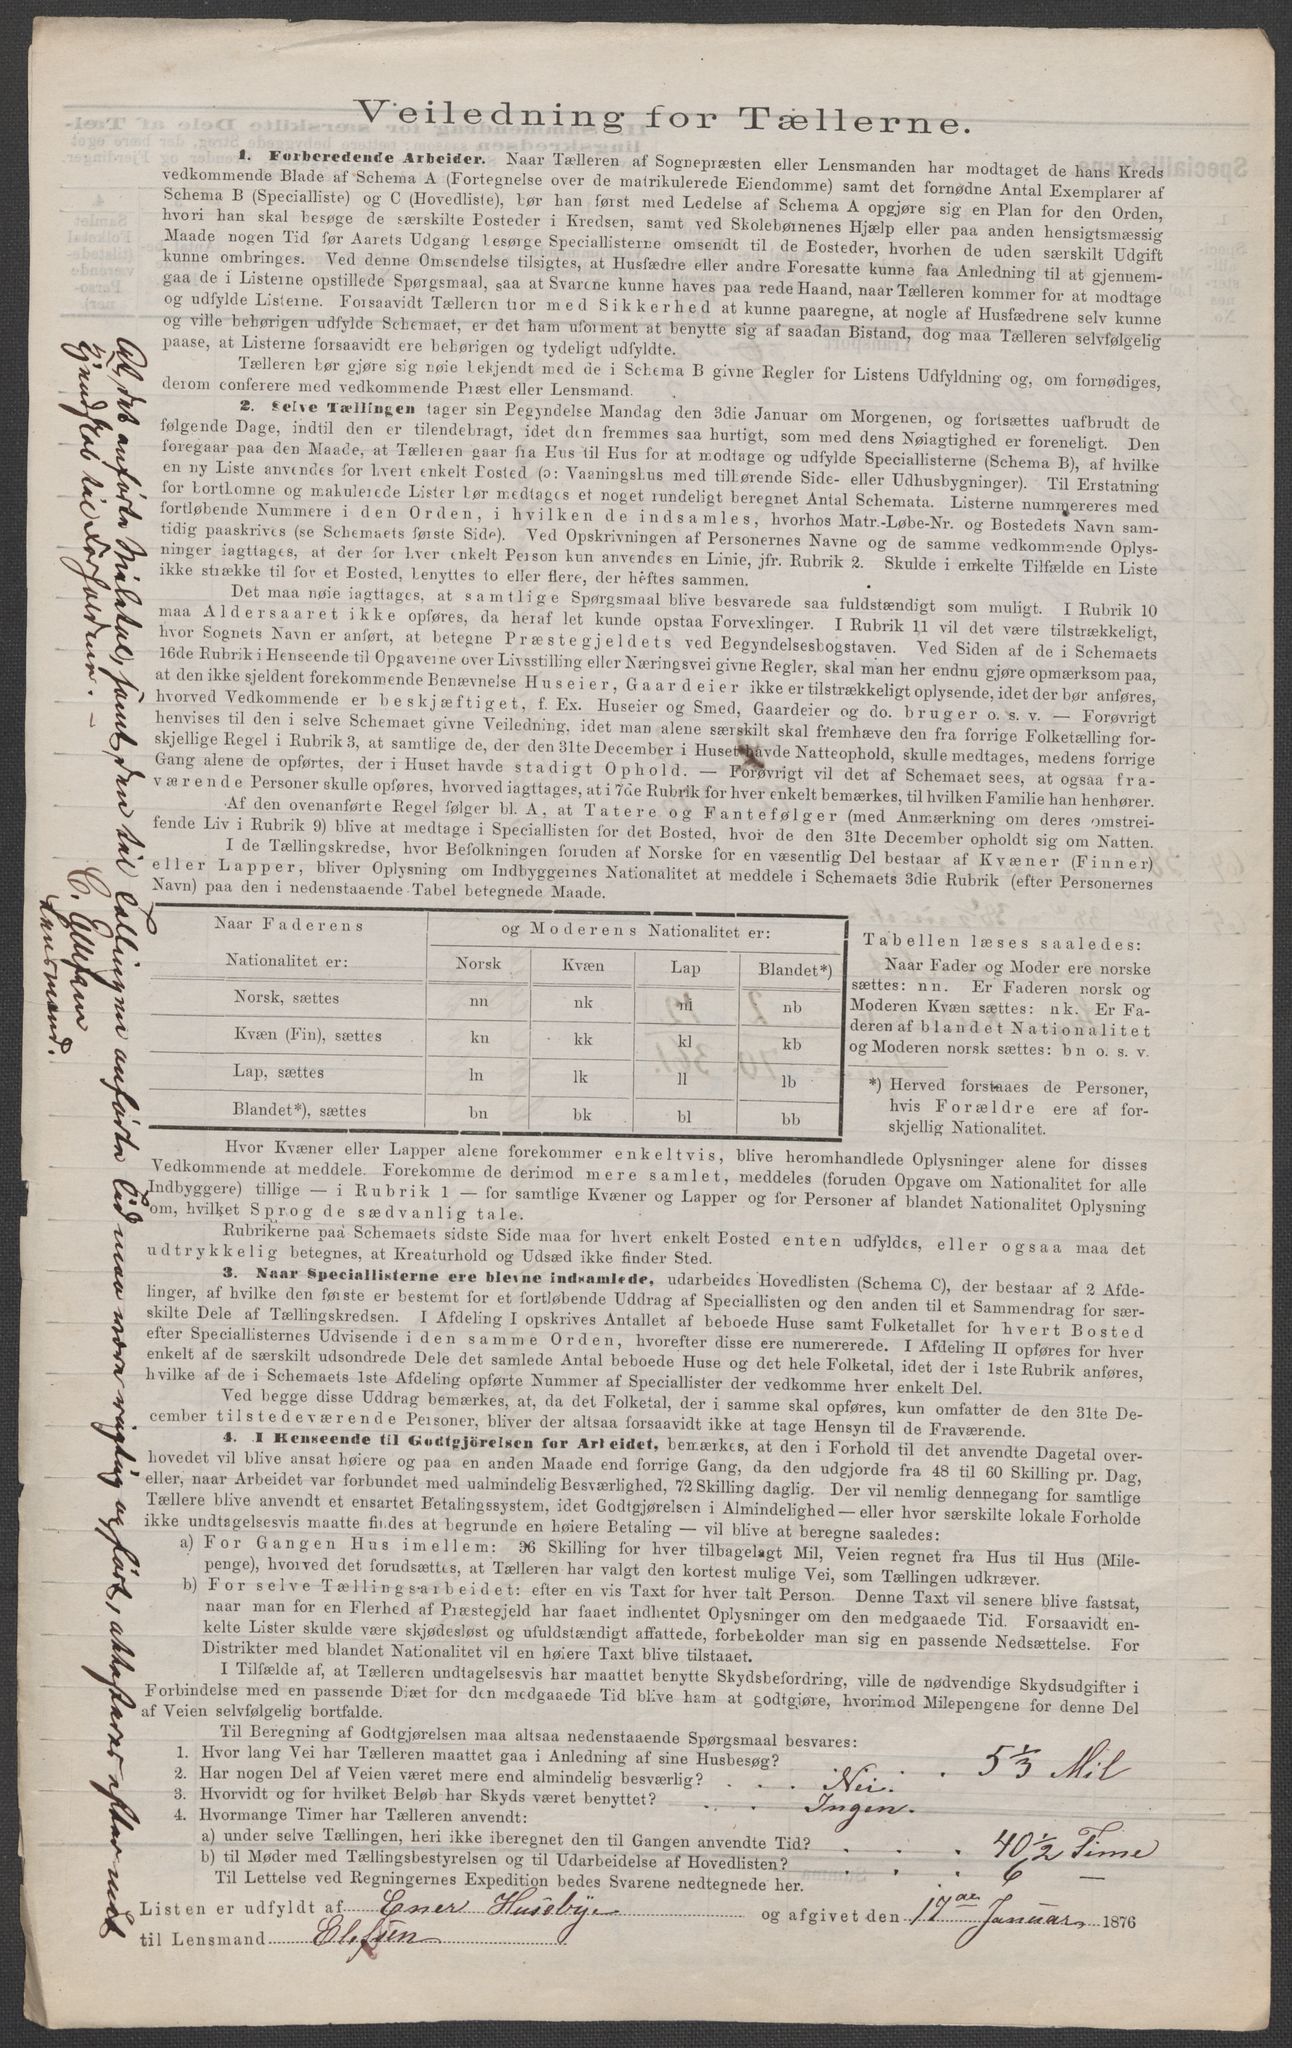 Veiledning for Tællerne.
1. Forberedende Arbeider. Naar Tælleren af Sognepræsten eller Lensmanden har modtaget de hans Kreds
vedkommende Blade af Schema A (Fortegnelse over de matrikulerede Eiendomme) samt det fornødne Antal Exemplarer af
Schema B (Specialliste) og C (Hovedliste), bør han først med Ledelse af Schema A opgjøre sig en Plan for den Orden,
hvori han skal besøge de særskilte Bosteder i Kredsen, samt ved Skolebørnenes Hjælp eller paa anden hensigtsmæssig
Maade nogen Tid før Aarets Udgang besørge Speciallisterne omsendt til de Bosteder, hvorhen de uden særskilt Udgift
kunne ombringes. Ved denne Omsendelse tilsigtes, at Husfædre eller andre Foresatte kunne faa Anledning til at gjennem-
gaa de i Listerne opstillede Spørgsmaal, saa at Svarene kunne haves paa rede Haand, naar Tælleren kommer for at modtage
og udfylde Listerne. Forsaavidt Tælleren tror med Sikkerhed at kunne paaregne, at nogle af Husfædrene selv kunne
og ville behørigen udfylde Schemaet, er det ham uforment at benytte sig af saadan Bistand, dog maa Tælleren selvfølgelig
paase, at Listerne forsaavidt ere behørigen og tydeligt udfyldte.
Tælleren bør gjøre sig nøie bekjendt med de i Schema B givne Regler for Listens Udfyldning og, om fornødiges,
derom conferere med vedkommende Præst eller Lensmand.
2. Selve Tællingen tager sin Begyndelse Mandag den 3die Januar om Morgenen, og fortsættes uafbrudt de
følgende Dage, indtil den er tilendebragt, idet den fremmes saa hurtigt, som med dens Nøiagtighed er foreneligt. Den
foregaar paa den Maade, at Tælleren gaar fra Hus til Hus for at modtage og udfylde Speciallisterne (Schema B), af hvilke
en ny Liste anvendes for hvert enkelt Bosted (ɔ: Vaaningshus med tilhørende Side- eller Udhusbygninger). Til Erstatning
for bortkomne og makulerede Lister bør medtages et noget rundeligt beregnet Antal Schemata. Listerne nummereres med
fortløbende Nummere i den Orden, i hvilken de indsamles, hvorhos Matr.-Løbe-Nr. og Bostedets Navn sam-
tidig paaskrives (se Schemaets første Side). Ved Opskrivningen af Personernes Navne og de samme vedkommende Oplys-
ninger iagttages, at der for hver enkelt Person kun anvendes en Linie, jfr. Rubrik 2. Skulde i enkelte Tilfælde en Liste
ikke strække til for et Bosted, benyttes to eller flere, der heftes sammen.
Det maa nøie iagttages, at samtlige Spørgsmaal blive besvarede saa fuldstændigt som muligt. I Rubrik 10
maa Aldersaaret ikke opføres, da heraf let kunde opstaa Forvexlinger. I Rubrik 11 vil det være tilstrækkeligt,
hvor Sognets Navn er anført, at betegne Præstegjeldets ved Begyndelsesbogstaven. Ved Siden af de i Schemaets
16de Rubrik i Henseende til Opgaverne over Livsstilling eller Næringsvei givne Regler, skal man her endnu gjøre opmærksom paa,
at den ikke sjeldent forekommende Benævnelse Huseier, Gaardeier ikke er tilstrækkeligt oplysende, idet der bør anføres,
hvorved Vedkommende er beskjæftiget, f. Ex. Huseier og Smed, Gaardeier og do. bruger o. s. v. — Forøvrigt
henvises til den i selve Schemaet givne Veiledning, idet man alene særskilt skal fremhæve den fra forrige Folketælling for-
skjellige Regel i Rubrik 3, at samtlige de, der den 31te December i Huset havde Natteophold, skulle medtages, medens forrige
Gang alene de opførtes, der i Huset havde stadigt Ophold. — Forøvrigt vil det af Schemaet sees, at ogsaa fra-
værende Personer skulle opføres, hvorved iagttages, at i 7de Rubrik for hver enkelt bemærkes, til hvilken Familie han henhører.
Af den ovenanførte Regel følger bl. A, at Tatere og Fantefølger (med Anmærkning om deres omstrei-
fende Liv i Rubrik 9) blive at medtage i Speciallisten for det Bosted, hvor de den 31te December opholdt sig om Natten.
I de Tællingskredse, hvor Befolkningen foruden af Norske for en væsentlig Del bestaar af Kvæner (Finner)
eller Lapper, bliver Oplysning om Indbyggernes Nationalitet at meddele i Schemaets 3die Rubrik (efter Personernes
Navn) paa den i nedenstaaende Tabel betegnede Maade.
Naar Faderens og Moderens Nationalitet er:
Nationalitet er: Norsk Kvæn Lap Blandet*)
Norsk, sættes nn nk nl nb
Kvæn (Fin), sættes kn kk kl kb
Lap, sættes ln lk ll lb
Blandet*), sættes bn bk bl bb
Tabellen læses saaledes:
Naar Fader og Moder ere norske
sættes: nn. Er Faderen norsk og
Moderen Kvæn sættes: nk. Er Fa-
deren af blandet Nationalitet
og Moderen norsk sættes: bn o. s. v.
*) Herved forstaaes de Personer,
hvis Forældre ere af for-
skjellig Nationalitet.
Hvor Kvæner eller Lapper alene forekommer enkeltvis, blive heromhandlede Oplysninger alene for disses
Vedkommende at meddele. Forekomme de derimod mere samlet, meddeles (foruden Opgave om Nationalitet for alle
Indbyggere) tillige — i Rubrik 1 — for samtlige Kvæner og Lapper og for Personer af blandet Nationalitet Oplysning
om, hvilket Sprog de sædvanlig tale.
Rubrikerne paa Schemaets sidste Side maa for hvert enkelt Bosted enten udfyldes, eller ogsaa maa det
udtrykkelig betegnes, at Kreaturhold og Udsæd ikke finder Sted.
3. Naar Speciallisterne ere blevne indsamlede, udarbeides Hovedlisten (Schema C), der bestaar af 2 Afde-
linger, af hvilke den første er bestemt for et fortløbende Uddrag af Speciallisten og den anden til et Sammendrag for sær-
skilte Dele af Tællingskredsen. I Afdeling I opskrives Antallet af beboede Huse samt Folketallet for hvert Bosted
efter Speciallisternes Udvisende i den samme Orden, hvorefter disse ere numererede. I Afdeling II opføres for hver
enkelt af de særskilt udsondrede Dele det samlede Antal beboede Huse og det hele Folketal, idet der i 1ste Rubrik anføres,
hvilke af de i Schemaets 1ste Afdeling opførte Nummer af Speciallister der vedkomme hver enkelt Del.
Ved begge disse Uddrag bemærkes, at, da det Folketal, der i samme skal opføres, kun omfatter de den 31te De-
cember tilstedeværende Personer, bliver der altsaa forsaavidt ikke at tage Hensyn til de Fraværende.
4. I Henseende til Godtgjörelsen for Arbeidet, bemærkes, at den i Forhold til det anvendte Dagetal over-
hovedet vil blive ansat høiere og paa en anden Maade end forrige Gang, da den udgjorde fra 48 til 60 Skilling pr. Dag,
eller, naar Arbeidet var forbundet med ualmindelig Besværlighed, 72 Skilling daglig. Der vil nemlig dennegang for samtlige
Tællere blive anvendt et ensartet Betalingssystem, idet Godtgjørelsen i Almindelighed — eller hvor særskilte lokale Forholde
ikke undtagelsesvis maatte findes at begrunde en høiere Betaling — vil blive at beregne saaledes:
a) For Gangen Hus imellem: 36 Skilling for hver tilbagelagt Mil, Veien regnet fra Hus til Hus (Mile-
penge), hvorved det forudsættes, at Tælleren har valgt den kortest mulige Vei, som Tællingen udkræver.
b) For selve Tællingsarbeidet: efter en vis Taxt for hver talt Person. Denne Taxt vil senere blive fastsat,
naar man for en Flerhed af Præstegjeld har faaet indhentet Oplysninger om den medgaaede Tid. Forsaavidt en-
kelte Lister skulde være skjødesløst og ufuldstændigt affattede, forbeholder man sig en passende Nedsættelse. For
Distrikter med blandet Nationalitet vil en høiere Taxt blive tilstaaet.
I Tilfælde af, at Tælleren undtagelsesvis har maattet benytte Skydsbefordring, ville de nødvendige Skydsudgifter i
Forbindelse med en passende Diæt for den medgaaede Tid blive ham at godtgjøre, hvorimod Milepengene for denne Del
af Veien selvfølgelig bortfalde.
Til Beregning af Godtgjørelsen maa altsaa nedenstaaende Spørgsmaal besvares:
1. Hvor lang Vei har Tælleren maattet gaa i Anledning af sine Husbesøg? . . . 5 1/3 Mil
2. Har nogen Del af Veien været mere end almindelig besværlig? . . . Nei.
3. Hvorvidt og for hvilket Beløb har Skyds været benyttet? . . . Ingen.
4. Hvormange Timer har Tælleren anvendt:
a) under selve Tællingen, heri ikke iberegnet den til Gangen anvendte Tid? . . . 40 1/2 Time
b) til Møder med Tællingsbestyrelsen og til Udarbeidelse af Hovedlisten? . . . 6 —
Til Lettelse ved Regningernes Expedition bedes Svarene nedtegnede her.
Listen er udfyldt af Ener Huseby og afgivet den 17de Januar 1876
til Lensmand Ellefsen
At det anførte Miletal, samt den til Tællingen anførte Tid maa være rigtig opført, attesteres efter mit
Kjendskab til Forholdene. —
C. Ellefsen
Lensmand.